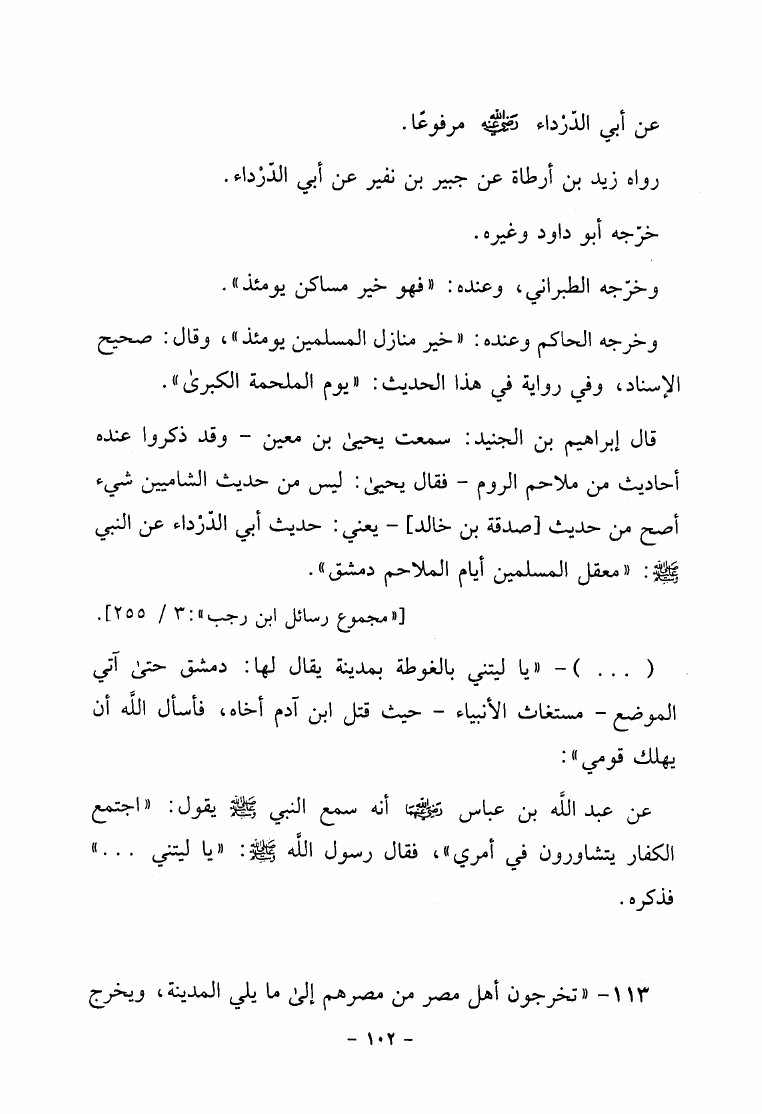 عن أبي الدّرْداء رَضِيَ اللَّهُ عَنْهُ مرفوعًا.
رواه زيد بن أرطاة عن جبير بن نفير عن أبي الدّرْداء.
خرّجه أبو داود وغيره.
وخرّجه الطبراني، وعنده: «فهو خير مساكن يومئذ».
وخرجه الحاكم وعنده: «خير منازل المسلمين يومئذ»، وقال: صحيح
الإسناد، وفي رواية في هذا الحديث: «يوم الملحمة الكبرىٰ».
قال إبراهيم بن الجنيد: سمعت يحيىٰ بن معين – وقد ذكروا عنده
أحاديث من ملاحم الروم – فقال يحيىٰ: ليس من حديث الشاميين شيء
أصح من حديث [صدقة بن خالد] – يعني: حديث أبي الدّرْداء عن النبي
ﷺ: «معقل المسلمين أيام الملاحم دمشق».
[«مجموع رسائل ابن رجب»: ٣ / ٢٥٥].
( ... ) – «يا ليتني بالغوطة بمدينة يقال لها: دمشق حتىٰ آتي
الموضع – مستغاث الأنبياء – حيث قتل ابن آدم أخاه، فأسأل اللَّه أن
يهلك قومي»:
عن عبد اللَّه بن عباس رَضِيَ اللَّهُ عَنْهُمَا أنه سمع النبي ﷺ يقول: «اجتمع
الكفار يتشاورون في أمري»، فقال رسول اللَّه ﷺ: «يا ليتني ...»
فذكره.
١١٣– «تخرجون أهل مصر من مصرهم إلىٰ ما يلي المدينة، ويخرج
– ١٠٢ –